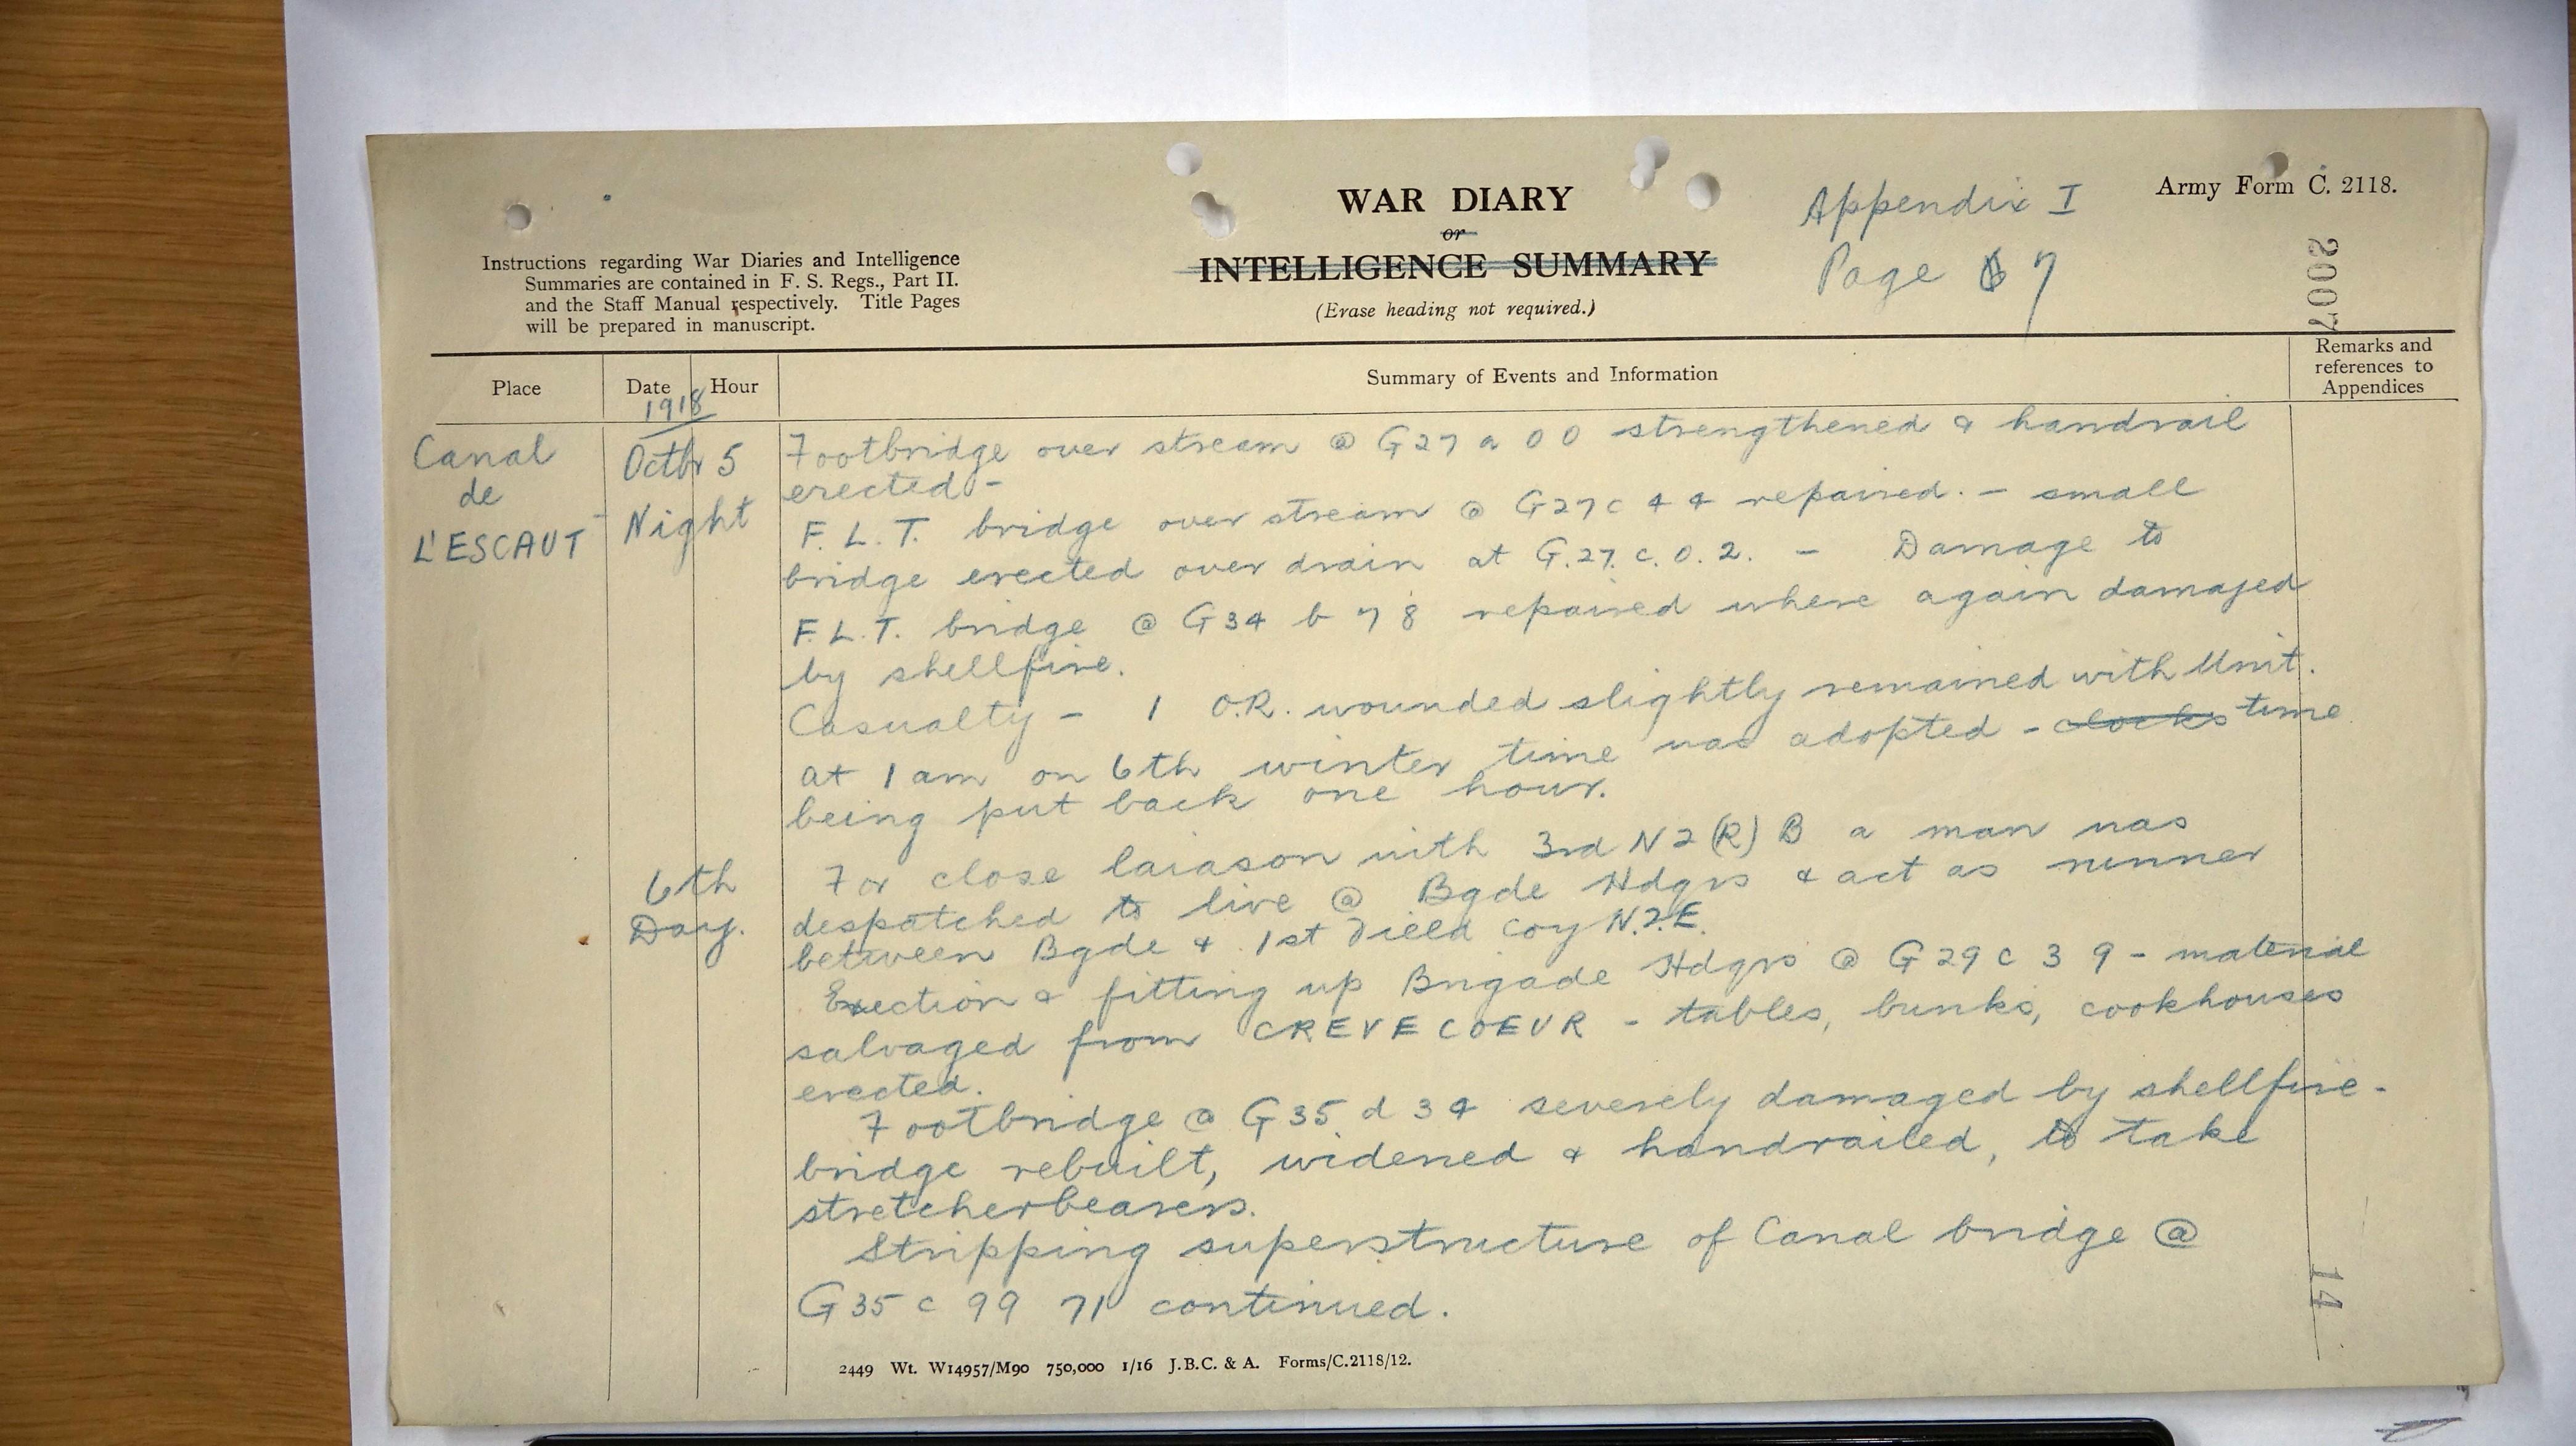 WAR DIARY
or
INTELLIGENCE SUMMARY
(Erase heading not required.)
Instructions regarding War Diaries and Intelligence
Summaries are contained in F. S. Regs., Part II.
and the Staff Manual respectively. Title Pages
will be prepared in manuscript.
Appendix I
Page 7
Army Form C. 2118.
2007
Place
Date
Hour
Summary of Events and Information
Remarks and
references to
Appendices
1918
Canal
de
L'ESCAUT
Octbr 5
Night
Footbridge over stream @ G27 a 0 0 strengthened & handrail
erected -
F. L. T. bridge over stream @ G27c 4 4 repaired. - small
bridge erected over drain at G.27.c.0.2. - Damage to
F.L.T. bridge @ G34 b 7 8 repaired where again damaged
by shellfire.
Casualty - 1 O.R. wounded slightly remained with Unit.
at 1 am on 6th winter time was adopted - clocks time
being put back one hour.
6th
Day.
For close laiason with 3rd NZ(R)B a man was
despatched to live @ Bgde Hdqrs & act as runner
between Bgde & 1st Field Coy N.Z.E.
Erection & fitting up Brigade Hdqrs @ G29 c 3 9 - material
salvaged from CREVECOEUR - tables, bunks, cookhouses
erected.
Footbridge @ G35 d 3 4 severely damaged by shellfire -
bridge rebuilt, widened & handrailed, to take
stretcherbearers.
Stripping superstructure of Canal bridge @
G35 c 99 71 continued.
14
2449 Wt. W14957/M90 750,000 1/16 J.B.C. & A. Forms/C.2118/12.